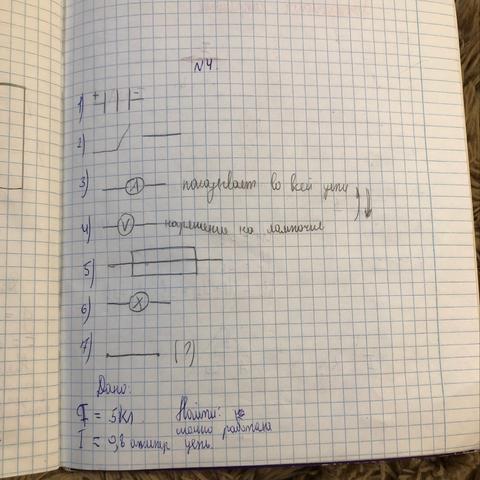 №4.
1) + =
2)
3) A показывает во всей цепи
4) V напряжение на лампочке
5)
6) X
7) (?)
Дано:
q = 5 Кл Найти:
I = 0,8 ампер работала
цепь.